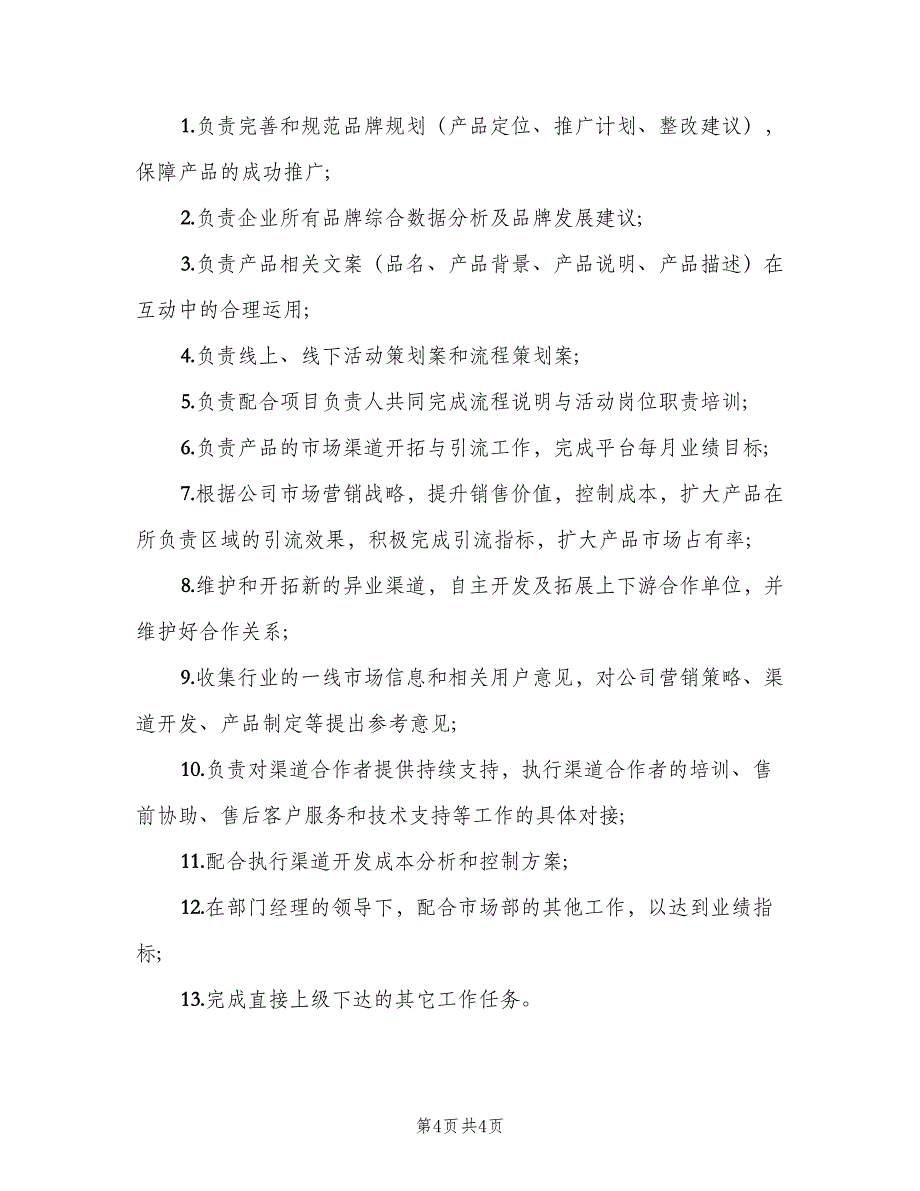 1.负责完善和规范品牌规划（产品定位、推广计划、整改建议），
保障产品的成功推广;
2.负责企业所有品牌综合数据分析及品牌发展建议;
3.负责产品相关文案（品名、产品背景、产品说明、产品描述）在
互动中的合理运用;
4.负责线上、线下活动策划案和流程策划案;
5.负责配合项目负责人共同完成流程说明与活动岗位职责培训;
6.负责产品的市场渠道开拓与引流工作，完成平台每月业绩目标;
7.根据公司市场营销战略，提升销售价值，控制成本，扩大产品在
所负责区域的引流效果，积极完成引流指标，扩大产品市场占有率;
8.维护和开拓新的异业渠道，自主开发及拓展上下游合作单位，并
维护好合作关系;
9.收集行业的一线市场信息和相关用户意见，对公司营销策略、渠
道开发、产品制定等提出参考意见;
10.负责对渠道合作者提供持续支持，执行渠道合作者的培训、售
前协助、售后客户服务和技术支持等工作的具体对接;
11.配合执行渠道开发成本分析和控制方案;
12.在部门经理的领导下，配合市场部的其他工作，以达到业绩指
标;
13.完成直接上级下达的其它工作任务。
第4页共4页